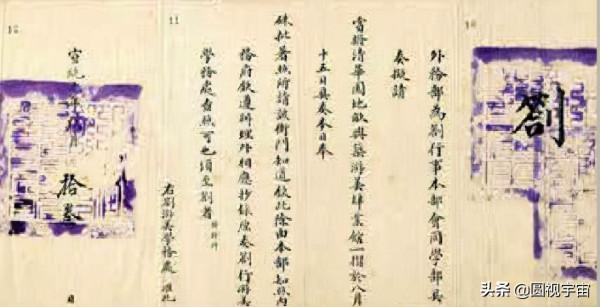 10
劄
外務部為劄行事本部會商學部具
奏擬請
賞撥清華園地畝興築游美肄業館一摺於八月
十五日具奏本日奉
硃批著照所請該衙門知道欽此除由本部知照內
務府欽遵辦理外相應抄錄原奏劄行游美
學務處查照可也須至劄者
11
右劄游美學務處准此
宣統元年 月 拾 日
12
头条 @圆视宇宙